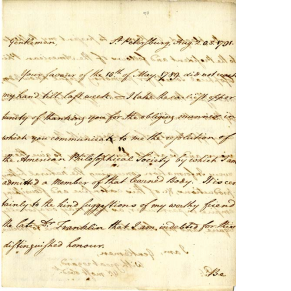 Gentlemen, St. Petersburg Aug.
Your favour of the 15th of May 1789 did not reach
my hand till last week. — I take the first oppor
tunity of thanking you for the obliging manner in
which you communicate to me the resolution of
the American Philosophical Society by which I am
admitted a Member of that learned Body. It is cer
tainly to the kind suggestions of my worthy friend
the late Dr. Franklin that I am indebted for this
distinguished honour.
I am, Gentlemen
The